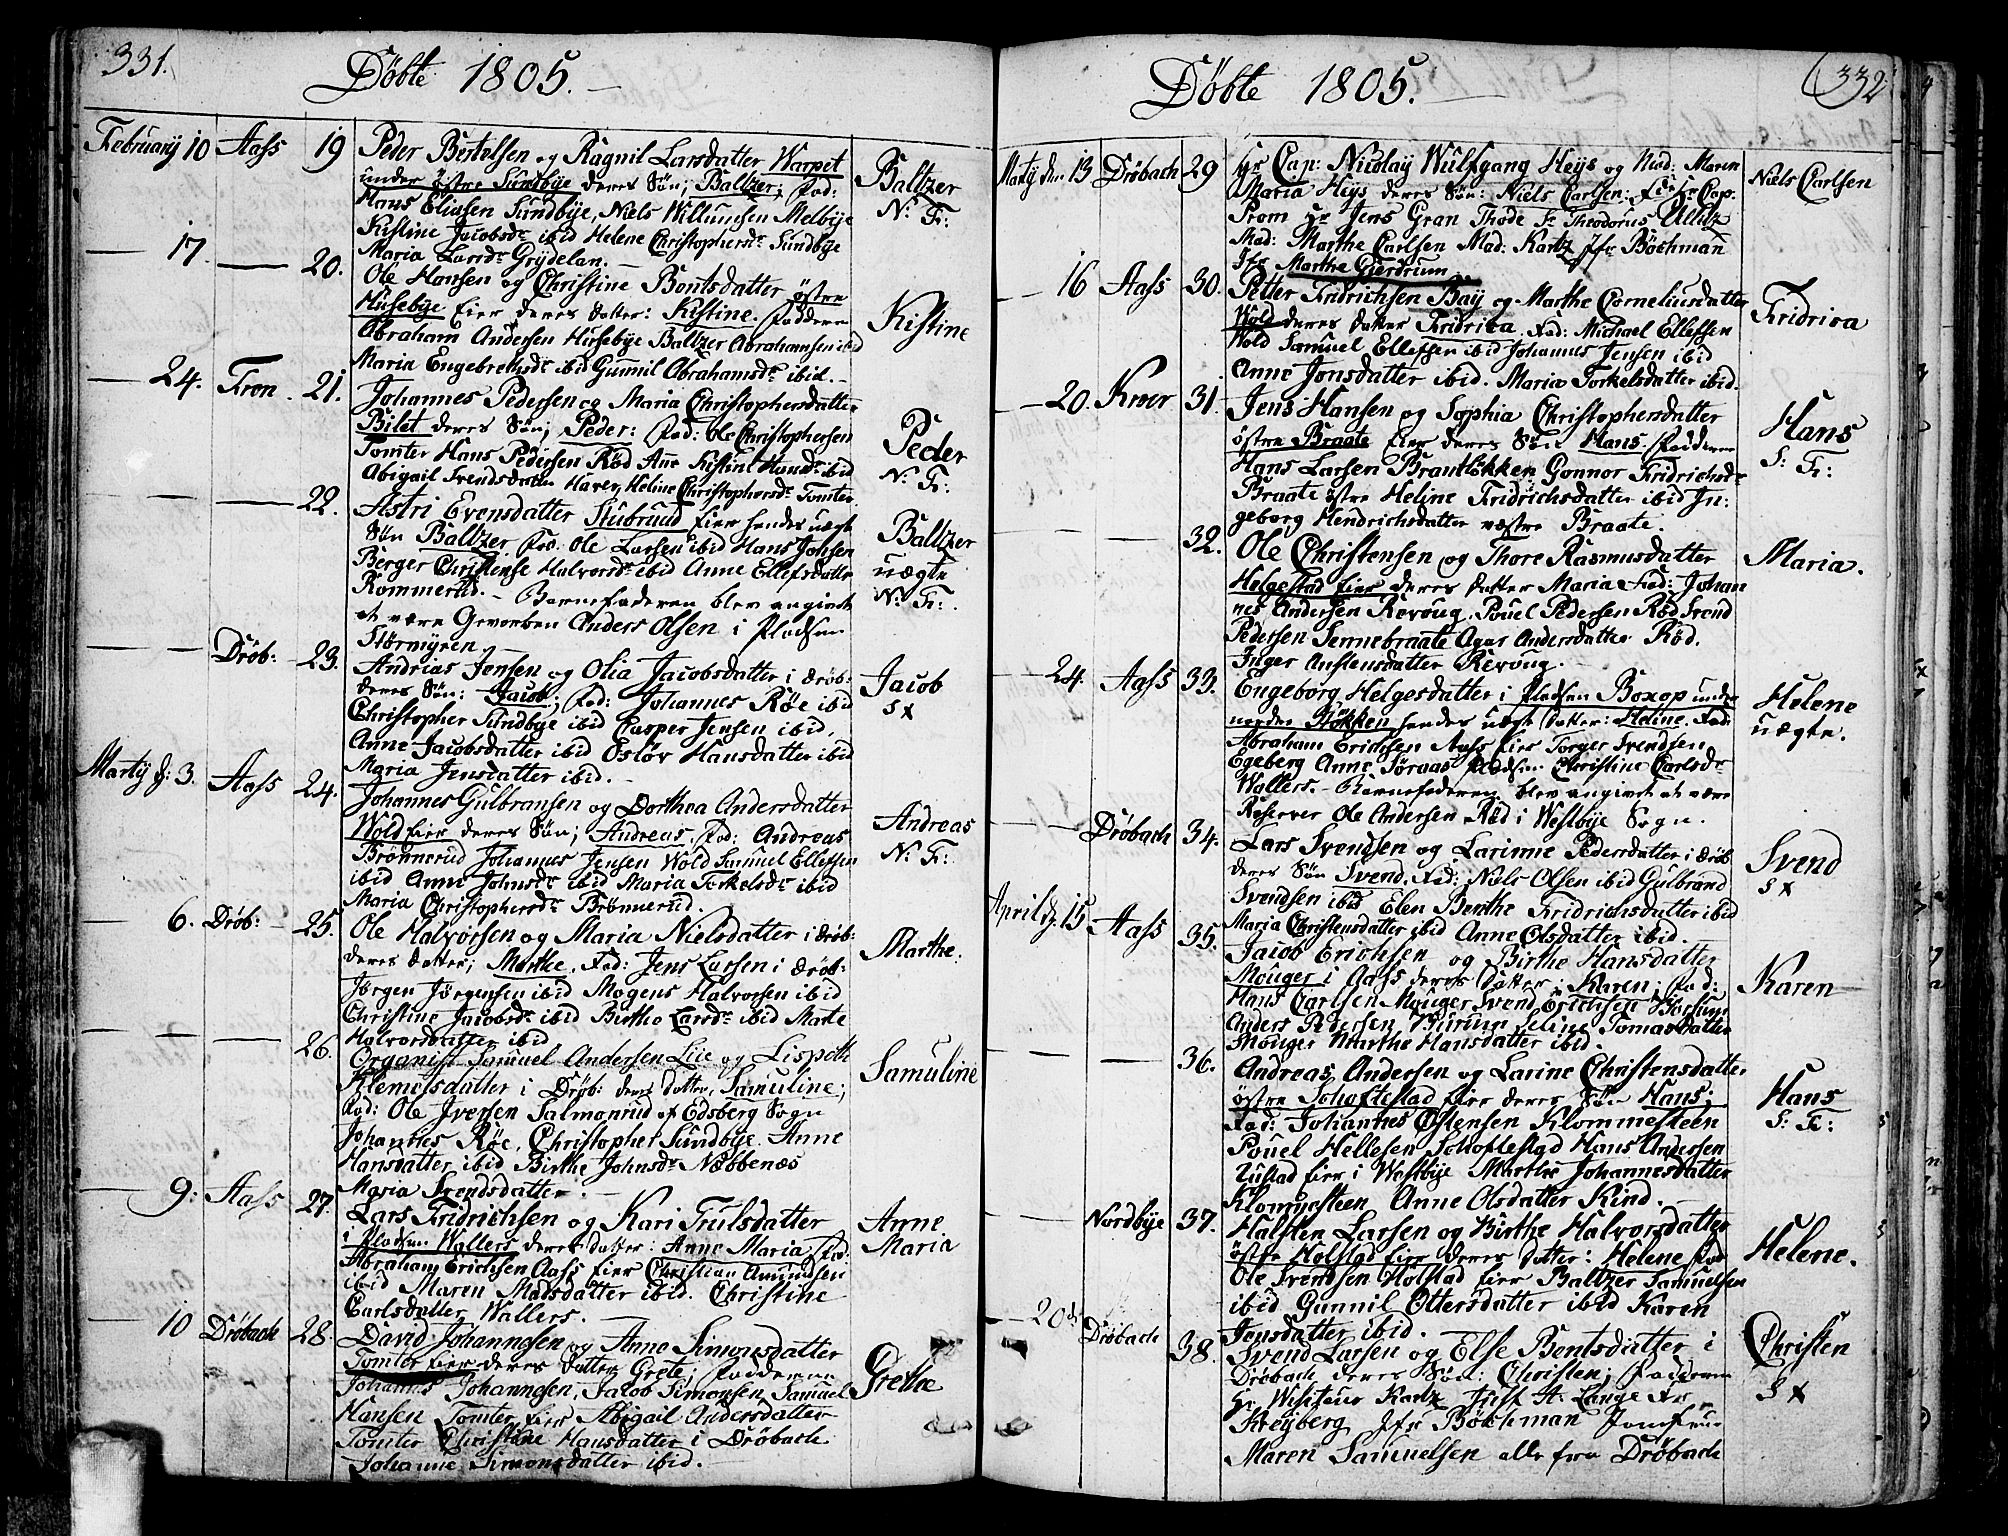 331.
Döbte 1805.
February 10 Aass 19 Peder Bertelsen og Ragnil Larsdatter Warpet
under östre Sundbye deres Sön; Baltzer; Fad:
Hans Eliasen Sundbye, Niels Willumsen Melbye
Kistine Jacobsdr ibid Helene Christophersdr Sundbye
Maria Larsdr Grydelan.
Baltzer
N: Fr:
17. 20. Ole Hansen og Christine Bentsdatter östre
Husebye Eier deres Datter: Kistine. Faddere
Abraham Andersen Husebye Baltzer Abrahamsen ibid
Maria Engebretsdr ibid Gunnil Abrahamsdr ibid.
Kistine
24. Fron. 21. Johannes Pedersen og Maria Christophersdatter
Bilet deres Sön; Peder: Fad: Ole Christophersen
Tomter Hans Pedersen Röd Anne Kistine Hansdr ibid
Abigail Svendsdatter Haver, Heline Christophersdr Tomter
Peder
N: Fr:
22. Astri Evensdatter Stubrud Eier hendes uægte
Sön Baltzer Fad. Ole Larsen ibid Hans Johsen
Berger Christense Halvorsdr ibid Anne Ellefsdatter
Rommerud. Barnefaderen blev angivet
at være Gevorben Anders Olsen i Pladsen
Störmyren.
Baltzer
uægte
N: Fr:
Dröb: 23. Andreas Jensen og Olia Jacobsdatter i Dröb:
deres Sön: Jacob; Fad: Johannes Röe ibid
Christopher Sundbye ibid Casper Jensen ibid,
Anne Jacobsdatter ibid Oslöv Hansdatter ibid
Maria Jensdatter ibid.
Jacob
S x
Marty d: 3. Aass 24. Johannes Gulbransen og Dorthea Andersdatter
Wold Eier deres Sön; Andreas. Fad: Andreas
Brönnerud Johannes Jensen Wold Samuel Ellefsen
ibid Anne Johnsdr ibid Maria Torkelsdr ibid
Maria Christophersdr Brönnerud.
Andreas
N: Fr:
6. Dröb: 25. Ole Halvorsen og Maria Nielsdatter i Dröb:
deres Datter; Marthe. Fad: Jens Larsen i Dröb:
Jörgen Jörgensen ibid Mogens Halvorsen ibid
Christine Jacobsdr ibid Birthe Larsdr ibid Marte
Halvorsdatter ibid
Marthe.
26. Organist Samuel Andersen Lüe og Lispeth
Klemetsdatter i Dröb: deres Datter, Samuline;
Fad: Ole Iversen Salmonrud af Edsberg Sogn
Johannes Röe, Christopher Sundbye. Anne
Hansdatter ibid Birthe Johnsdr Næbbenæs
Maria Svendsdatter.
Samuline
9: Aass 27. Lars Fridrichsen og Kari Trulsdatter
i Pladsen Wallers deres Datter: Anne Maria, Fad:
Abraham Erichsen Aass Eier Christian Amundsen
ibid Maren Madsdatter ibid. Christine
Carlsdatter Wallers.
Anne
Maria
10 Dröbach 28. David Johannesen og Anne Simonsdatter
Tomter Eier deres Datter Grete; Faddere
Johannes Johannesen, Jacob Simonsen, Samuel
Hansen Tomter Eier Abigail Andersdatter
Tomter Christine Hansdatter i Dröbach
Johanne Simonsdatter ibid.
Grethe
332
Döbte 1805.
Marty den 13 Dröbach 29 Hr Cap: Nicolay Wulfgang Heys og Mad: Maren
Maria Heys deres Sön: Niels Carlsen: F: Hr Cap:
Prom Hr Jens Gran Thode Hr Theodorus Ulitz
Mad: Marthe Carlsen Mad: Kartz Jfr Böchman
Jfr Marthe Gierdrum
Niels Carlsen
16 Aass 30. Petter Fridrichsen Bay og Marthe Corneliusdatter
Wold deres Datter Fridrica. Fad: Michael Ellefsen
Wold Samuel Ellefsen ibid Johannes Jensen ibid
Anne Jonsdatter ibid. Maria Torkelsdatter ibid.
Fridrica
20. Kroer 31. Jens Hansen og Sophia Christophersdatter
östre Braate Eier deres Sön: Hans. Faddere
Hans Larsen Brantlökken Gonnor Fridrichsdr
Braate östre Heline Fridrichsdatter ibid In-
geborg Hendrichsdatter væstre Braate.
Hans
S: Fr:
32. Ole Christensen og Thore Rasmusdatter
Helgestad Eier deres Datter Maria Fad: Johan
nes Andersen Revoug, Pouel Pedersen Röd Svend
Pedersen Sennebraate Agar Andersdatter Röd.
Inger Anstensdatter Revoug.
Maria.
24. Aass 33. Engeborg Helgesdatter i Pladsen Boxop under
nordre Stökken hendes uægte Datter: Heline. Fad:
Abraham Erichsen Aass Eier Torger Svendsen
Egeberg Anne Söraas Pladsen Christine Carlsdr
Wallers. Barnefaderen blev angivet at være
Reserver Ole Andersen Röd i Westbye Sogn.
Helene
uægte.
Dröbach 34. Lars Svendsen og Larinne Pedersdatter i Dröb
deres Sön Svend. Fad: Niels Olsen ibid Gulbrand
Svendsen ibid Elen Berthe Fridrichsdatter ibid
Maria Christensdatter ibid Anne Olsdatter ibid.
Svend
S x
April d. 15 Aass 35. Jacob Erichsen og Birthe Hansdatter
Mouger i Aass deres Datter: Karen; Fad:
Hans Carlsen Mouger Svend Erichsen
Anders Pedersen Burum Seline Tomasdatter
Mouger Marthe Hansdatter ibid.
Karen
36. Andreas Andersen og Larine Christensdatter
östre Schoftestad Eier deres Sön Hans;
Fad: Johannes Östensen Klommesteen
Pouel Hellesen Schoftestad Hans Andersen
Rustad Eier i Westbye Marthe Johannesdatter
Klommesteen Anne Olsdatter Kind.
Hans
S: Fr:
Nordbye 37. Halsten Larsen og Birthe Halvorsdatter
östre Holstad Eier deres Datter: Helene Fad
Ole Svendsen Holstad Eier Baltzer Samuelsen
ibid Gunnil Ottersdatter ibid Karen
Jensdatter ibid.
Helene.
20d Dröbach 38. Svend Larsen og Else Bentsdatter i
Dröbach deres Sön: Christen; Faddere
Hr Wisiteur Kartz, Just A. Lange Fr
Kreyberg Jfr Böchman Jomfrue
Maren Samuelsen alle fra Dröbach
Christen
S x